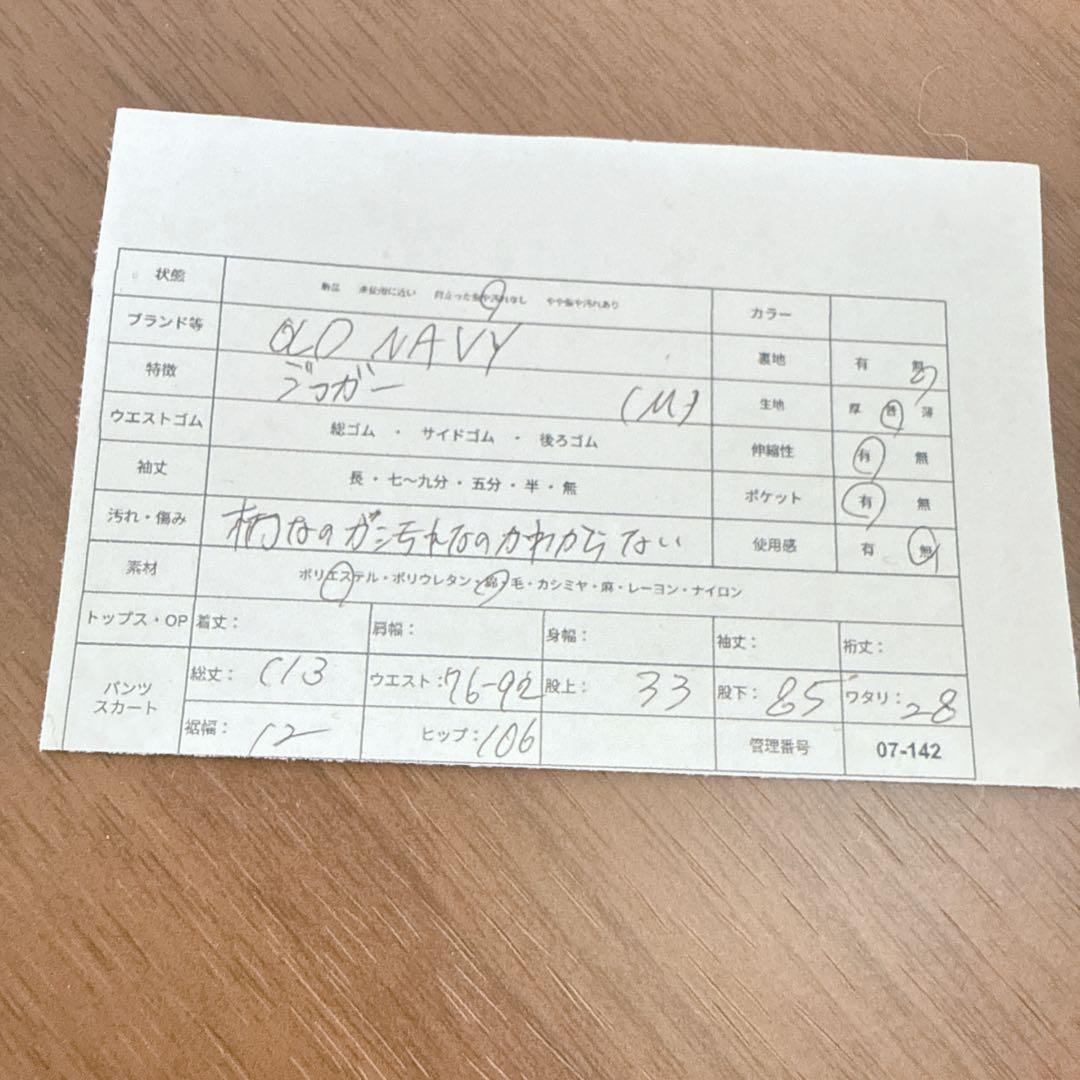 状態 新品 未使用に近い 目立った傷や汚れなし やや傷や汚れあり カラー
ブランド等 OLD NAVY 裏地 有 無
特徴 ジョガー (M) 生地 厚 普 薄
ウエストゴム 総ゴム ・ サイドゴム ・ 後ろゴム 伸縮性 有 無
袖丈 長・七〜九分・五分・半・無 ポケット 有 無
汚れ・傷み 柄なのか汚れなのかわからない 使用感 有 無
素材 ポリエステル・ポリウレタン・綿・毛・カシミヤ・麻・レーヨン・ナイロン
トップス・OP 着丈: 肩幅: 身幅: 袖丈: 裄丈:
パンツ スカート 総丈: 113 ウエスト:76-92 股上: 33 股下: 85 ワタリ:28
裾幅: 12 ヒップ:106 管理番号 07-142